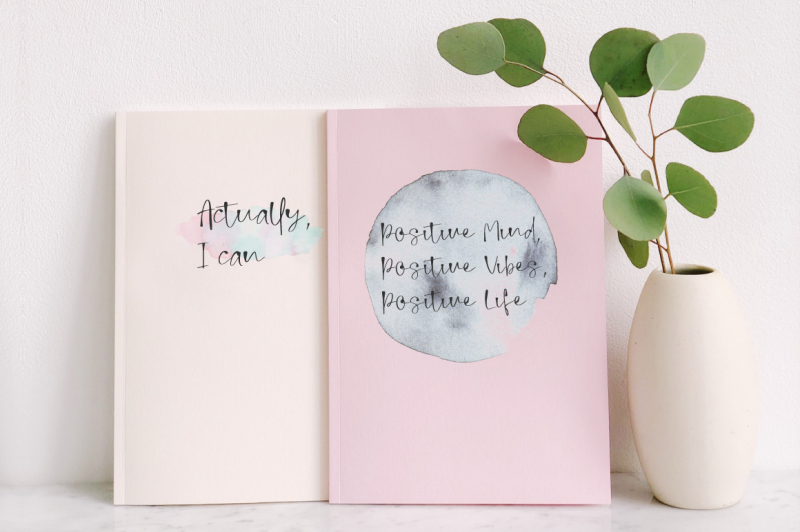 Actually,
I can
Positive Mind,
Positive Vibes,
Positive Life